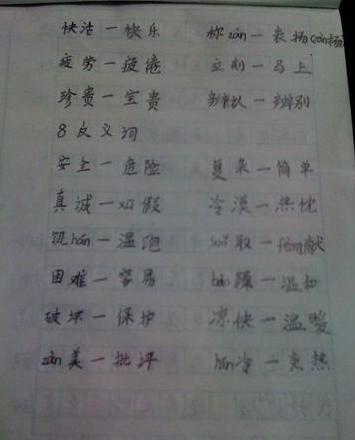 快活—快乐 称zàn—表扬(zàn扬)
疲劳—疲倦 立刻—马上
珍贵—宝贵 辨认—辨别
8 反义词
安全—危险 复杂—简单
真诚—xū假 冷漠—热忱
饥hán—温饱 suǒ取—fèng献
困难—容易 bào躁—温和
破坏—保护 凉快—温暖
zàn美—批评 hán冷—炎热